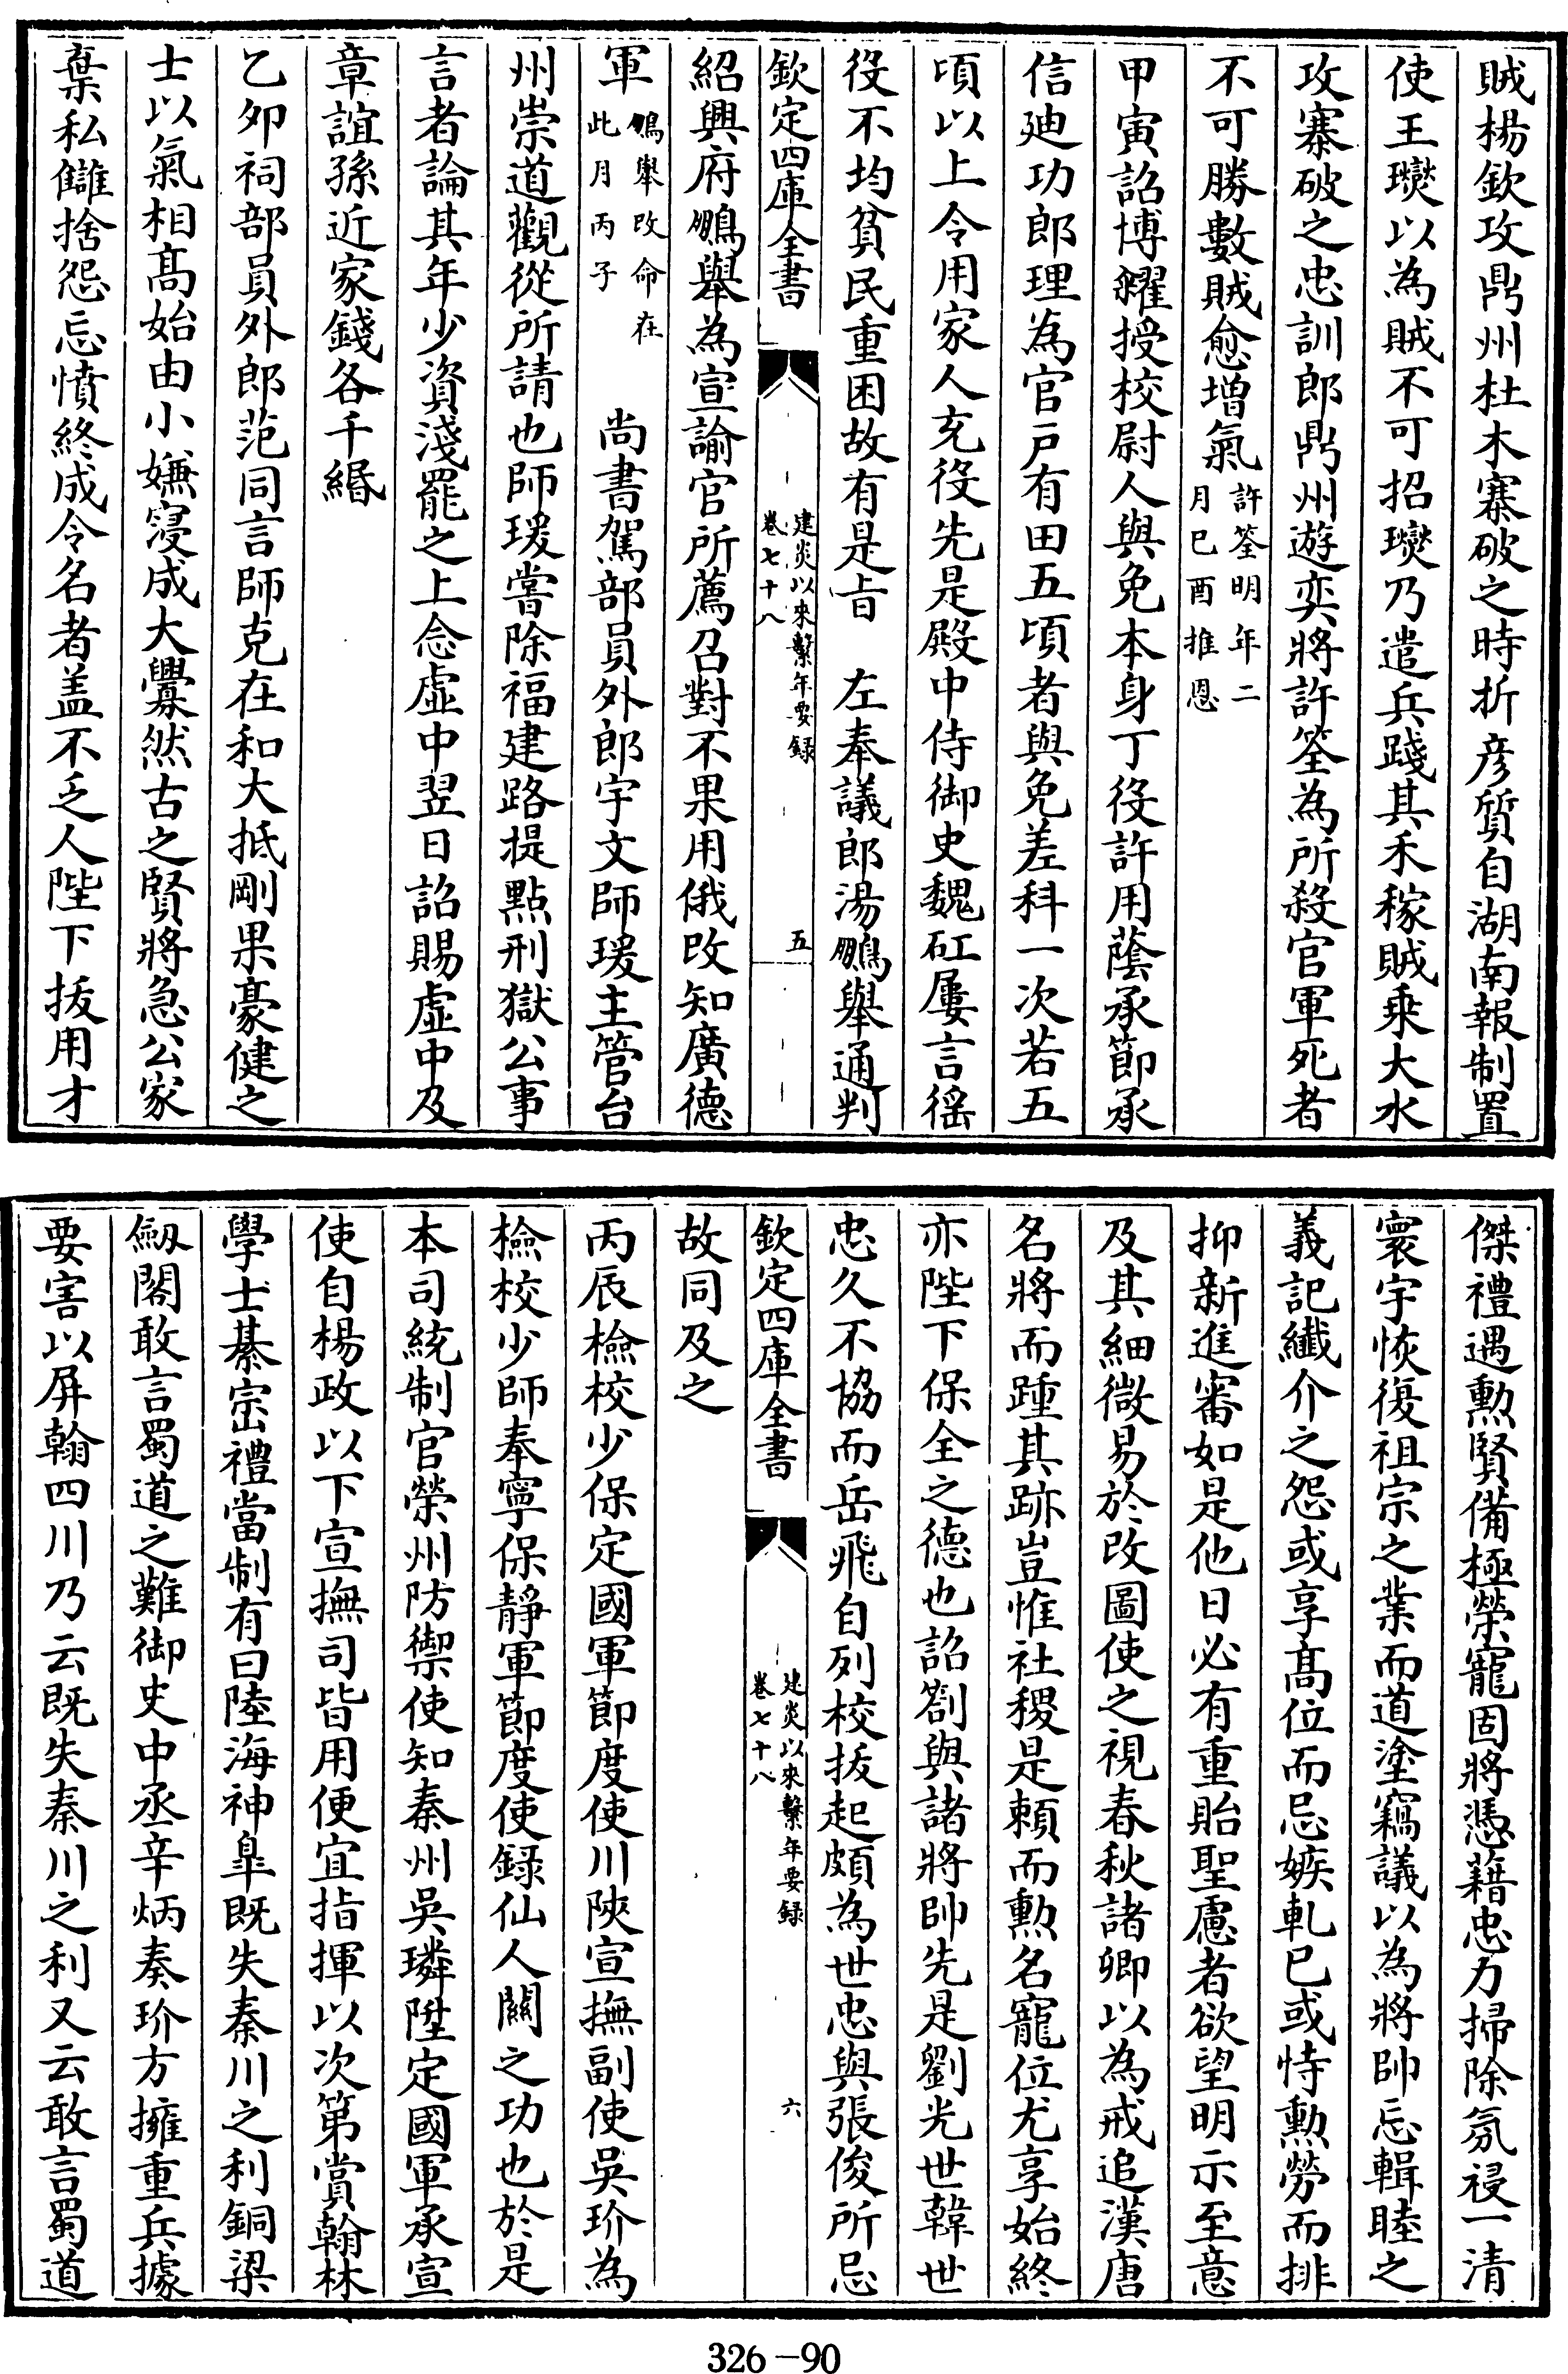 賊楊欽攻鼎州杜木寨破之時折彦質自湖南報制置
使王𤫉以為賊不可招𤫉乃遣兵踐其禾稼賊乗大水
攻寨破之忠訓郎鼎州遊奕將許筌為所殺官軍死者
不可勝數賊愈增氣許筌明年二月已酉推恩
甲寅詔博糴授校尉人與免本身丁役許用蔭承節承
信廸功郎理為官戸有田五頃者與免差科一次若五
頃以上令用家人充役先是殿中侍御史魏矼屢言徭
役不均貧民重困故有是㫖　左奉議郎湯鵬舉通判
欽定四庫全書
建炎以來繫年要録
卷七十八
五
紹興府鵬舉為宣諭官所薦召對不果用俄改知廣德
軍鵬舉改命在此月丙子　尚書駕部員外郎宇文師瑗主管台
州崇道觀從所請也師瑗嘗除福建路提點刑獄公事
言者論其年少資淺罷之上念虚中翌日詔賜虚中及
章誼孫近家錢各千緡
乙夘祠部員外郎范同言師克在和大抵剛果豪健之
士以氣相髙始由小嫌寖成大釁然古之賢將急公家
棄私讎捨怨忘憤終成令名者盖不乏人陛下拔用才
傑禮遇勲賢備極榮寵固將憑藉忠力掃除氛祲一清
寰宇恢復祖宗之業而道塗竊議以為將帥忘輯睦之
義記纎介之怨或享髙位而忌嫉軋已或恃勲勞而排
抑新進審如是他日必有重貽聖慮者欲望明示至意
及其細微易於改圖使之視春秋諸卿以為戒追漢唐
名將而踵其跡豈惟社稷是頼而勲名寵位尤享始終
亦陛下保全之德也詔劄與諸將帥先是劉光世韓世
忠久不協而岳飛自列校拔起頗為世忠與張俊所忌
欽定四庫全書
建炎以來繫年要録
卷七十八
六
故同及之
丙辰檢校少保定國軍節度使川陜宣撫副使吳玠為
檢校少師奉寧保靜軍節度使録仙人關之功也於是
本司統制官榮州防禦使知秦州吳璘陞定國軍承宣
使自楊政以下宣撫司皆用便宜指揮以次第賞翰林
學士綦崈禮當制有曰陸海神臯既失秦川之利銅梁
劔閣敢言蜀道之難御史中丞辛炳奏玠方擁重兵據
要害以屏翰四川乃云既失秦川之利又云敢言蜀道
326-90